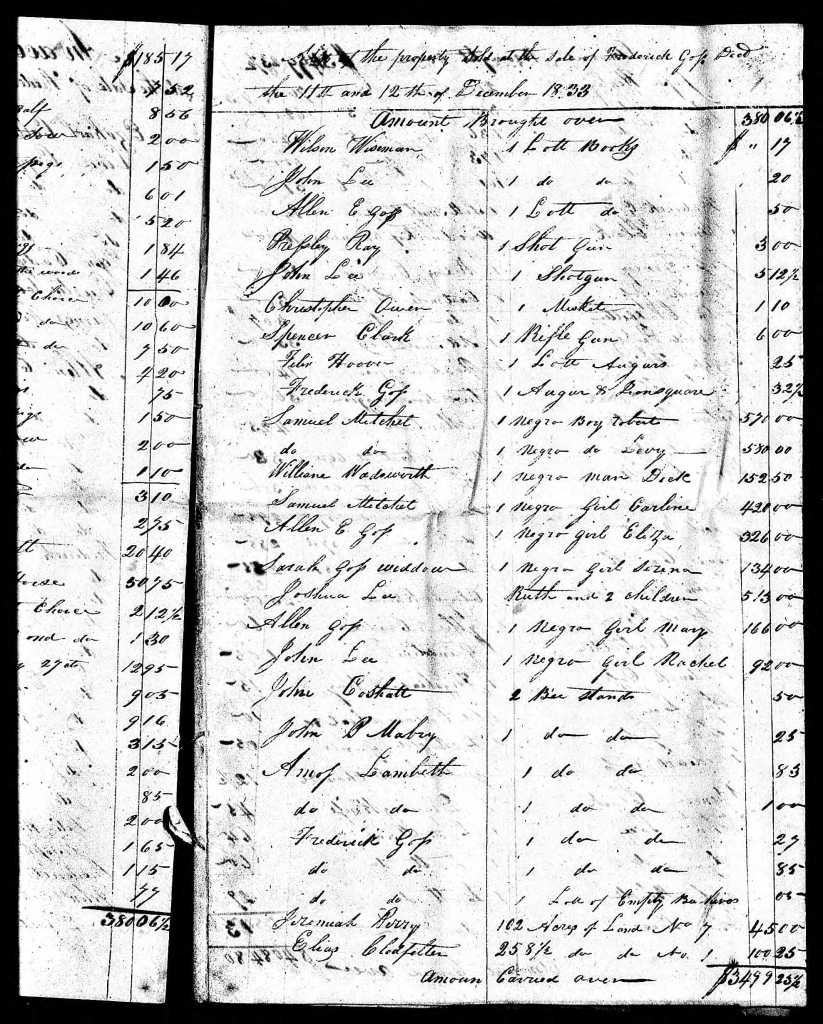 $185 17
7 52
alf 8 56
2 00
pigs 1 50
6 01
5 20
1 84
1 46
Choice 10 00
do 10 60
do 7 50
4 20
75
1 50
2 00
1 10
3 10
2 75
20 40
Horse 50 75
Choice 2 12½
ond do 1 30
12 95
9 05
9 16
3 15
2 00
85
2 00
1 65
1 15
77
380 06½
the property sold at the sale of Frederick Goss Decd
the 11th and 12th of December 1833
Amount Brought over 380 06½
Wilson Wiseman 1 Lott Books $ " 17
John Lee 1 do do 20
Allen E Goss 1 Lott do 50
Pressley Ray 1 Shot Gun 3 00
John Lee 1 Shotgun 5 12½
Christopher Owen 1 Musket 1 10
Spencer Clark 1 Rifle Gun 6 00
Felix Hoover 1 Lott Augurs 25
Frederick Goss 1 Augur & Ironsquare 32½
Samuel Mitchel 1 Negro Boy Robert 570 00
do do 1 Negro do Levy 580 00
William Wadsworth 1 Negro man Dick 152 50
Samuel Mitchel 1 Negro Girl Carline 420 00
Allen E Goss 1 Negro girl Eliza 326 00
Sarah Goss widdow 1 Negro Girl Serina 134 00
Joshua Lee Ruth and 2 children 513 00
Allen Goss 1 Negro Girl Mary 166 00
John Lee 1 Negro Girl Rachel 92 00
John Coshatt 2 Bee stands 50
John P Mabry 1 do do 25
Amos Lambeth 1 do do 83
do do 1 do do 1 00
Frederick Goss 1 do do 27
do do 1 do do 85
do do 1 Lott of Empty Beehives 05
Jeremiah Perry 102 Acres of Land No 7 45 00
Elias Clodfelter 258½ do do No. 1 100 25
Amoun Carried over $3499 25½